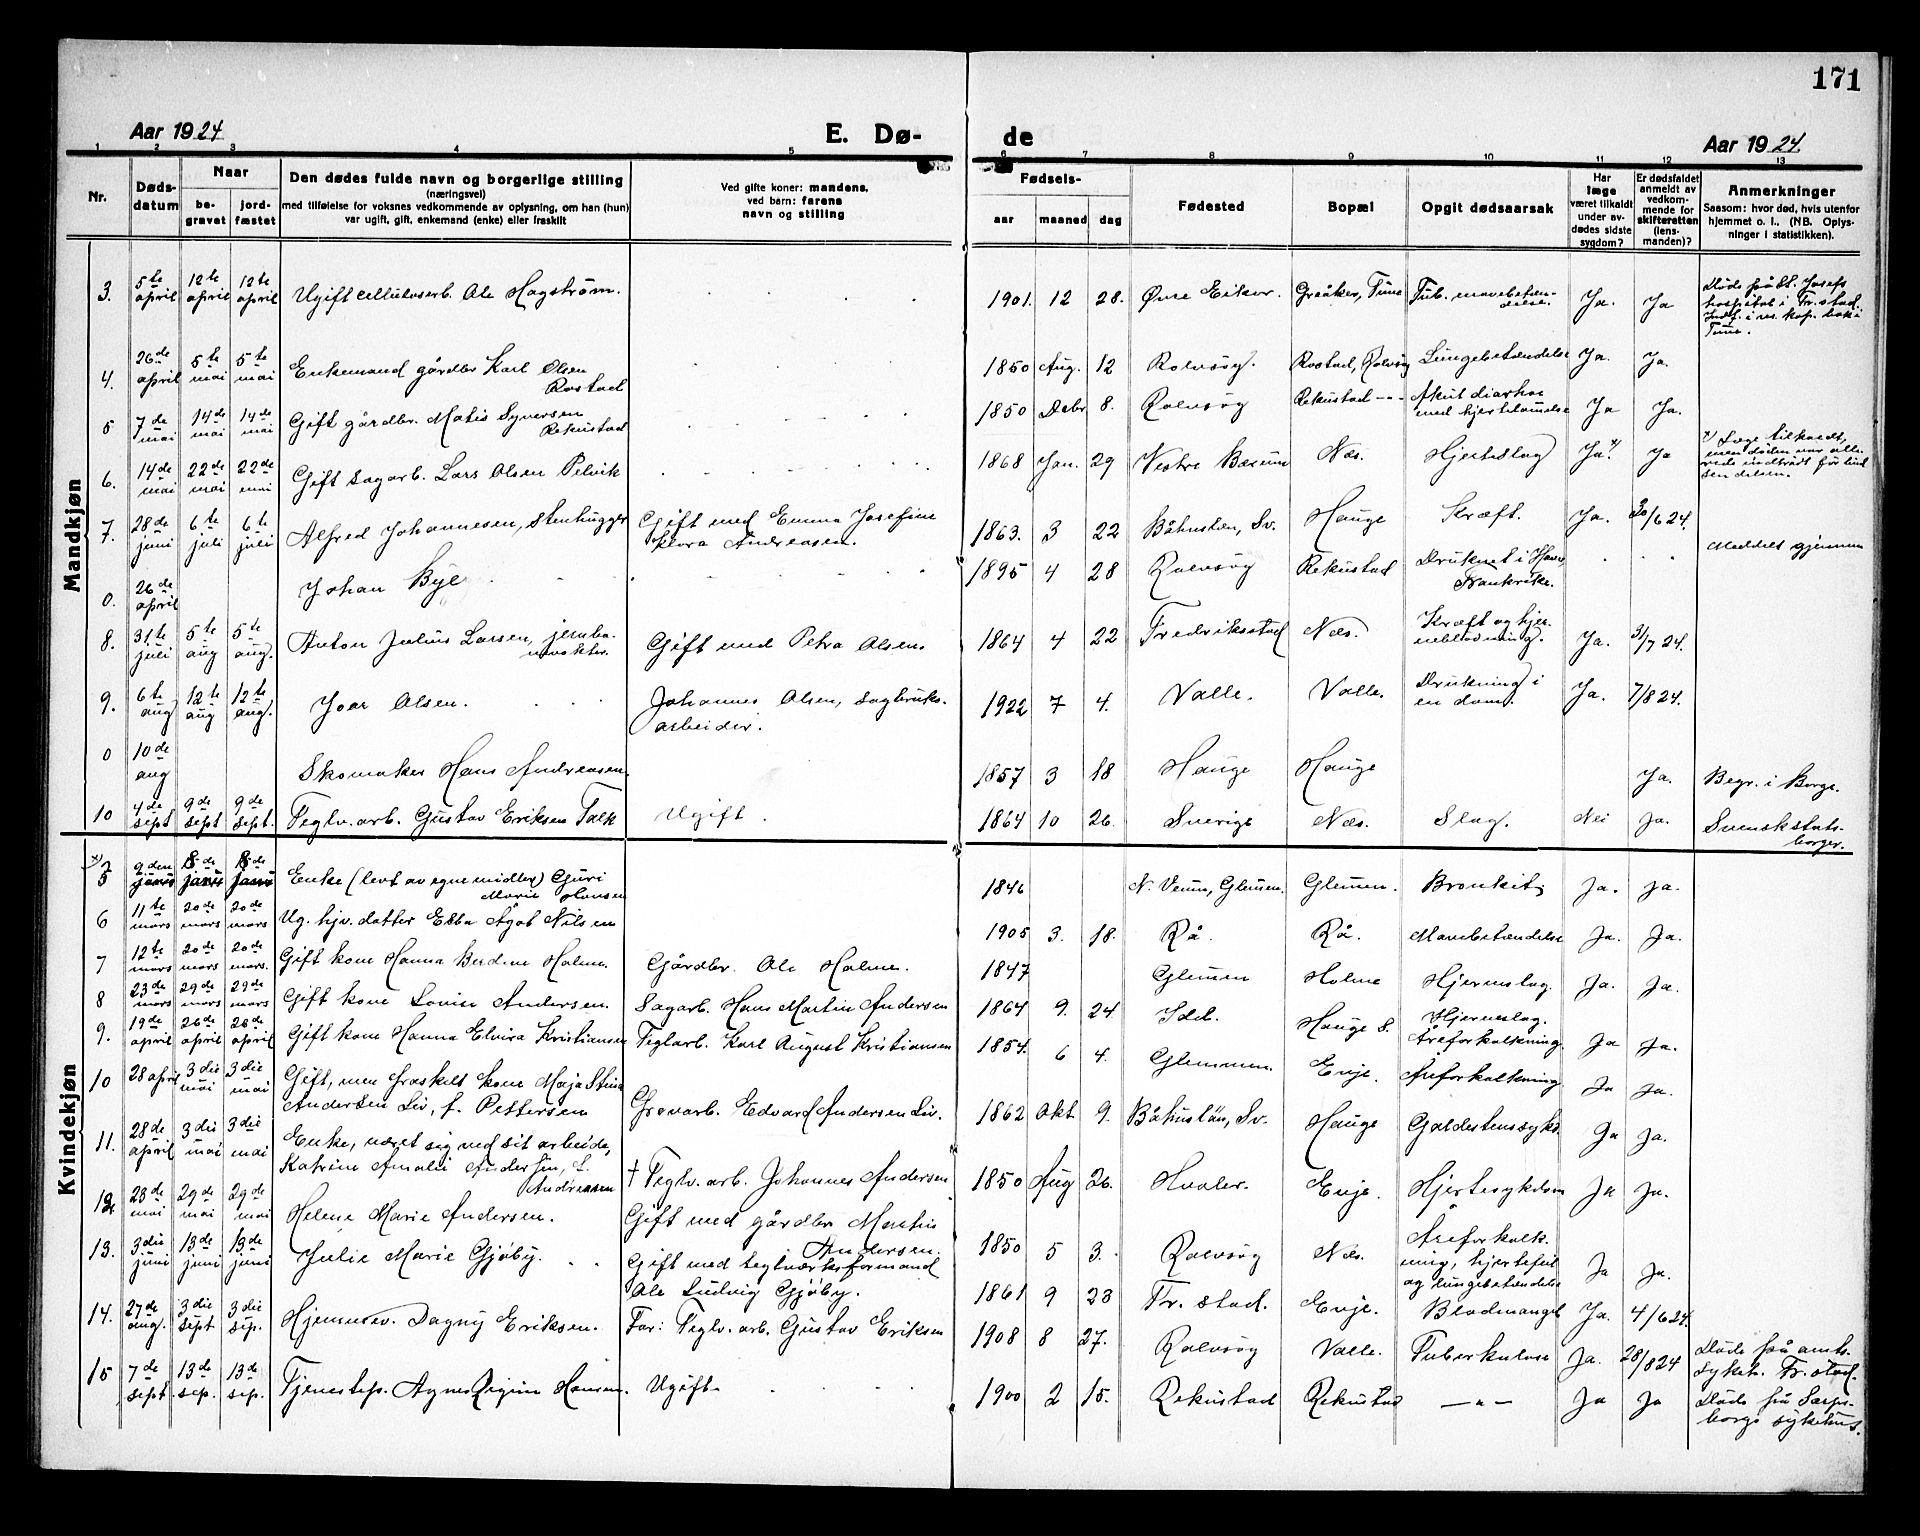 171
Aar 1924
E. Dø-
de
Aar 1924.
1 2 3 4 5 6 7 8 9 10 11 12 13
Nr.
Døds-
datum
Naar
be-
gravet
jord-
fæstet
Den dødes fulde navn og borgerlige stilling
(næringsvei)
med tilføielse for voksnes vedkommende av oplysning, om han (hun)
var ugift, gift, enkemand (enke) eller fraskilt
Ved gifte koner: mandens,
ved barn: farens
navn og stilling
Fødsels-
aar maaned dag
Fødested
Bopæl
Opgit dødsaarsak
Har
læge
været tilkaldt
under av-
dødes sidste
sygdom?
Er dødsfaldet
anmeldt av
vedkom-
mende for
skifteretten
(lens-
manden)?
Anmerkninger
Saasom: hvor død, hvis utenfor
hjemmet o. l., (NB. Oplys-
ninger i statistikken).
Mandkjøn
3. 5te april 12te april 12te april Ugift cellulosearb. Ole Hagstrøm. 1901. 12 28. Øvre Eiker. Greåker, Tune Tub. mavebetæn-
delse. Ja. Ja Døde på St. Josefs
hospital i Fr.stad.
Indf. i m. kap. bok i
Tune.
4. 26de april 5te mai 5te mai Enkemand gårdbr Karl Olsen
Rostad 1850 Aug. 12 Rolvsøy. Rostad, Rolvsøy Lungebetændelse Ja. Ja.
5 7de mai 14de mai 14de mai Gift gårdbr. Matis Syversen
Rekustad 1850 Debr 8. Rolvsøy Rekustad -"- Akut diarhoe
med hjertelamelse Ja Ja.
6. 14de mai 22de mai 22de mai Gift sagarb. Lars Olsen Pelvik 1868 Jan. 29 Vestre Bærum Næs. Hjerteslag Ja x) Ja x) Læge tilkaldt,
men døden var alle-
rede indtrådt før
7. 28de juni 6te juli 6te juli Alfred Johannesen, Stenhugger Gift med Emma Josefine
Klora Andreasen. 1863. 3 22 Båhuslen, Sv. Hauge Kræft. Ja. 30/6 24.
0. 26de april Johan Bye 1895 4 28 Rolvsøy Rekustad Druknet i Havre
Frankrike. Meddelt gjennem
8. 31te juli 5te aug 5te aug. Anton Julius Larsen, jernba-
nevokter. Gift med Petra Olsen 1864 4 22 Fredriksstad Næs. Kræft og hjer-
neblødning. Ja. 31/7 24.
9. 6te aug 12te aug 12te aug. Ivar Olsen. Johannes Olsen, Sagbruks-
arbeider. 1922 7 4. Valle. Valle. Drukning i
en dam. Ja. 7/8 24.
0 10de aug Skomaker Hans Andreasen 1857 3 18 Hauge Hauge Ja. Begr. i Borge.
10 4de sept 9de sept 9de sept. Teglv. arb. Gustav Eriksen Falk Ugift. 1864 10 26. Sverige Næs. Slag. Nei Ja. Svensk stats-
borger.
Kvindekjøn
x) 5 9den 8de 8de Enke (levt av egne midler) Guri
Marie Hansen 1846 N. Verum, Glemen. Glemen. Bronkit Ja. Ja.
6 11te mars 20de mars 20de mars Ug. hjv. datter Ebba Agot Nilsen 1905 3. 18. Rå. Rå. Mavebetændelse Ja. Ja.
7 12te mars 20de mars 20de mars. Gift kone Hanna Berdine Holme. Gårdbr. Ole Holme. 1847 Glemen Holme Hjerneslag Ja. Ja.
8 23de mars 29de mars 29de mars Gift kone Lovise Andersen. Sagarb. Hans Martin Andersen 1864 9. 24 Idd. Hauge S. Hjerneslag.
Åreforkalkning. Ja Ja.
9. 19de april 26de april 26de april Gift kone Hanna Elvira Kristiansen Teglarb. Karl August Kristiansen 1854. 6 4. Glemmen Evje. Åreforkalkning Ja Ja.
10 28 april 3die mai 3die mai Gift, men fraskilt kone Maja Stina
Andersen Liv, f. Pettersen Grovarb. Edvard Andersen Liv. 1862 Okt 9. Båhuslän, Sv. Hauge Galdestenssykd. Ja Ja.
11. 28de april 3die mai 3die mai Enke, næret sig ved sit arbeide,
Katrine Amalie Andersen, f.
Andresen † Teglv. arb. Johannes Andersen 1850 Aug 26. Hvaler. Evje. Hjertesykdom Ja Ja.
12 23de mai 29de mai 29de mai Helene Marie Andersen. Gift med gårdbr Martin
Andersen. 1850 5 3. Rolvsøy Næs. Åreforkalk-
ning, hjertefeil
og lungebetændelse Ja Ja.
13. 3die juni 13de juni 13de juni Julie Marie Gjøby. Gift med teglværksformand
Ole Ludvig Gjøby. 1861 9 23 Fr. stad. Evje. Blodmangel Ja. 4/6 24.
14. 27de aug. 3die sept 3die sep. Hjemmev. Dagny Eriksen. Far: Teglv. arb. Gustav Eriksen 1908 8 27. Rolvsøy Valle. Tuberkulose Ja. 28/8 24 Døde på amts-
sykeh. Fr.stad.
15 7de sept 13de sep. 13de sep. Tjenestep. Agnes Hansen. Ugift. 1900 2 15. Rekustad Rekustad -"- Ja Ja Døde på Sarps-
borgs sykehus.